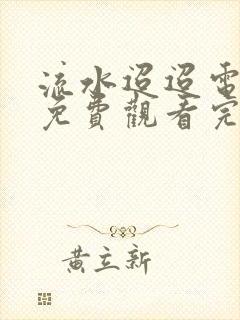 流水迢迢電
免費觀看完
黃立新